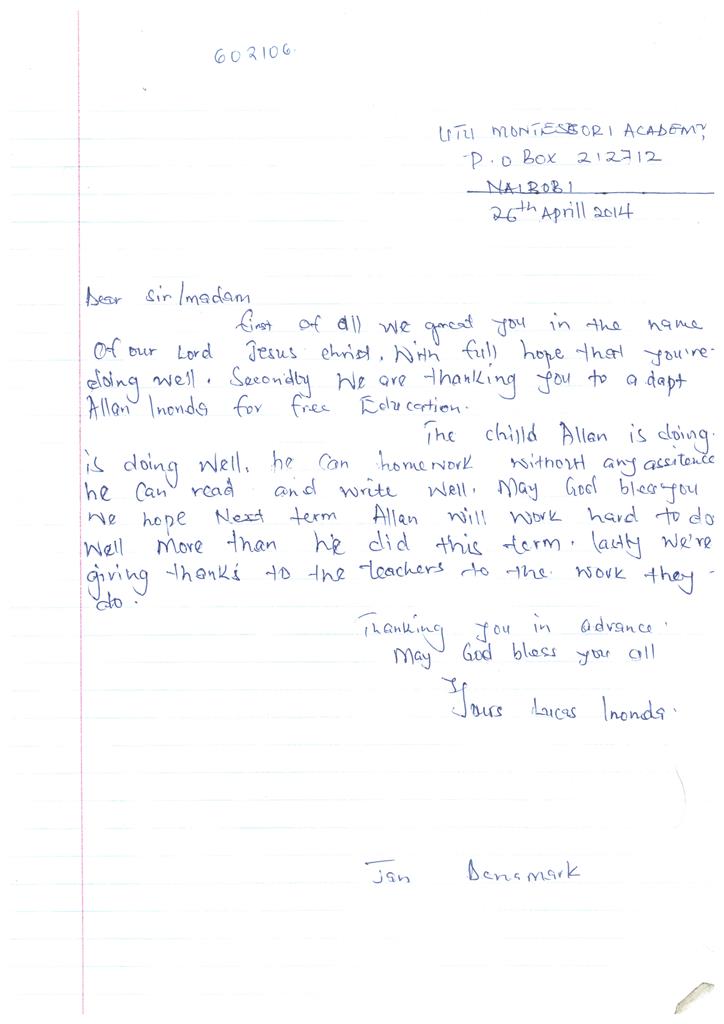 602106.
UTU MONTESSORI ACADEMY,
P.O BOX 212712
NAIROBI
26th Aprill 2014
Dear Sir/madam
first of all we great you in the name
Of our Lord Jesus christ. With full hope that you're
doing well. Secondly We are thanking you to adapt
Allan Inonda for free Education.
The chilld Allan is doing.
is doing well. he can homework without any assitence
he can read and write well. May God bless you
We hope Next term Allan will work hard to do
well more than he did this term. lastly we're
giving thanks to the teachers to the work they
do.
Thanking you in advance.
May God bless you all
Yours Lucas Inonda.
Jan Denamark